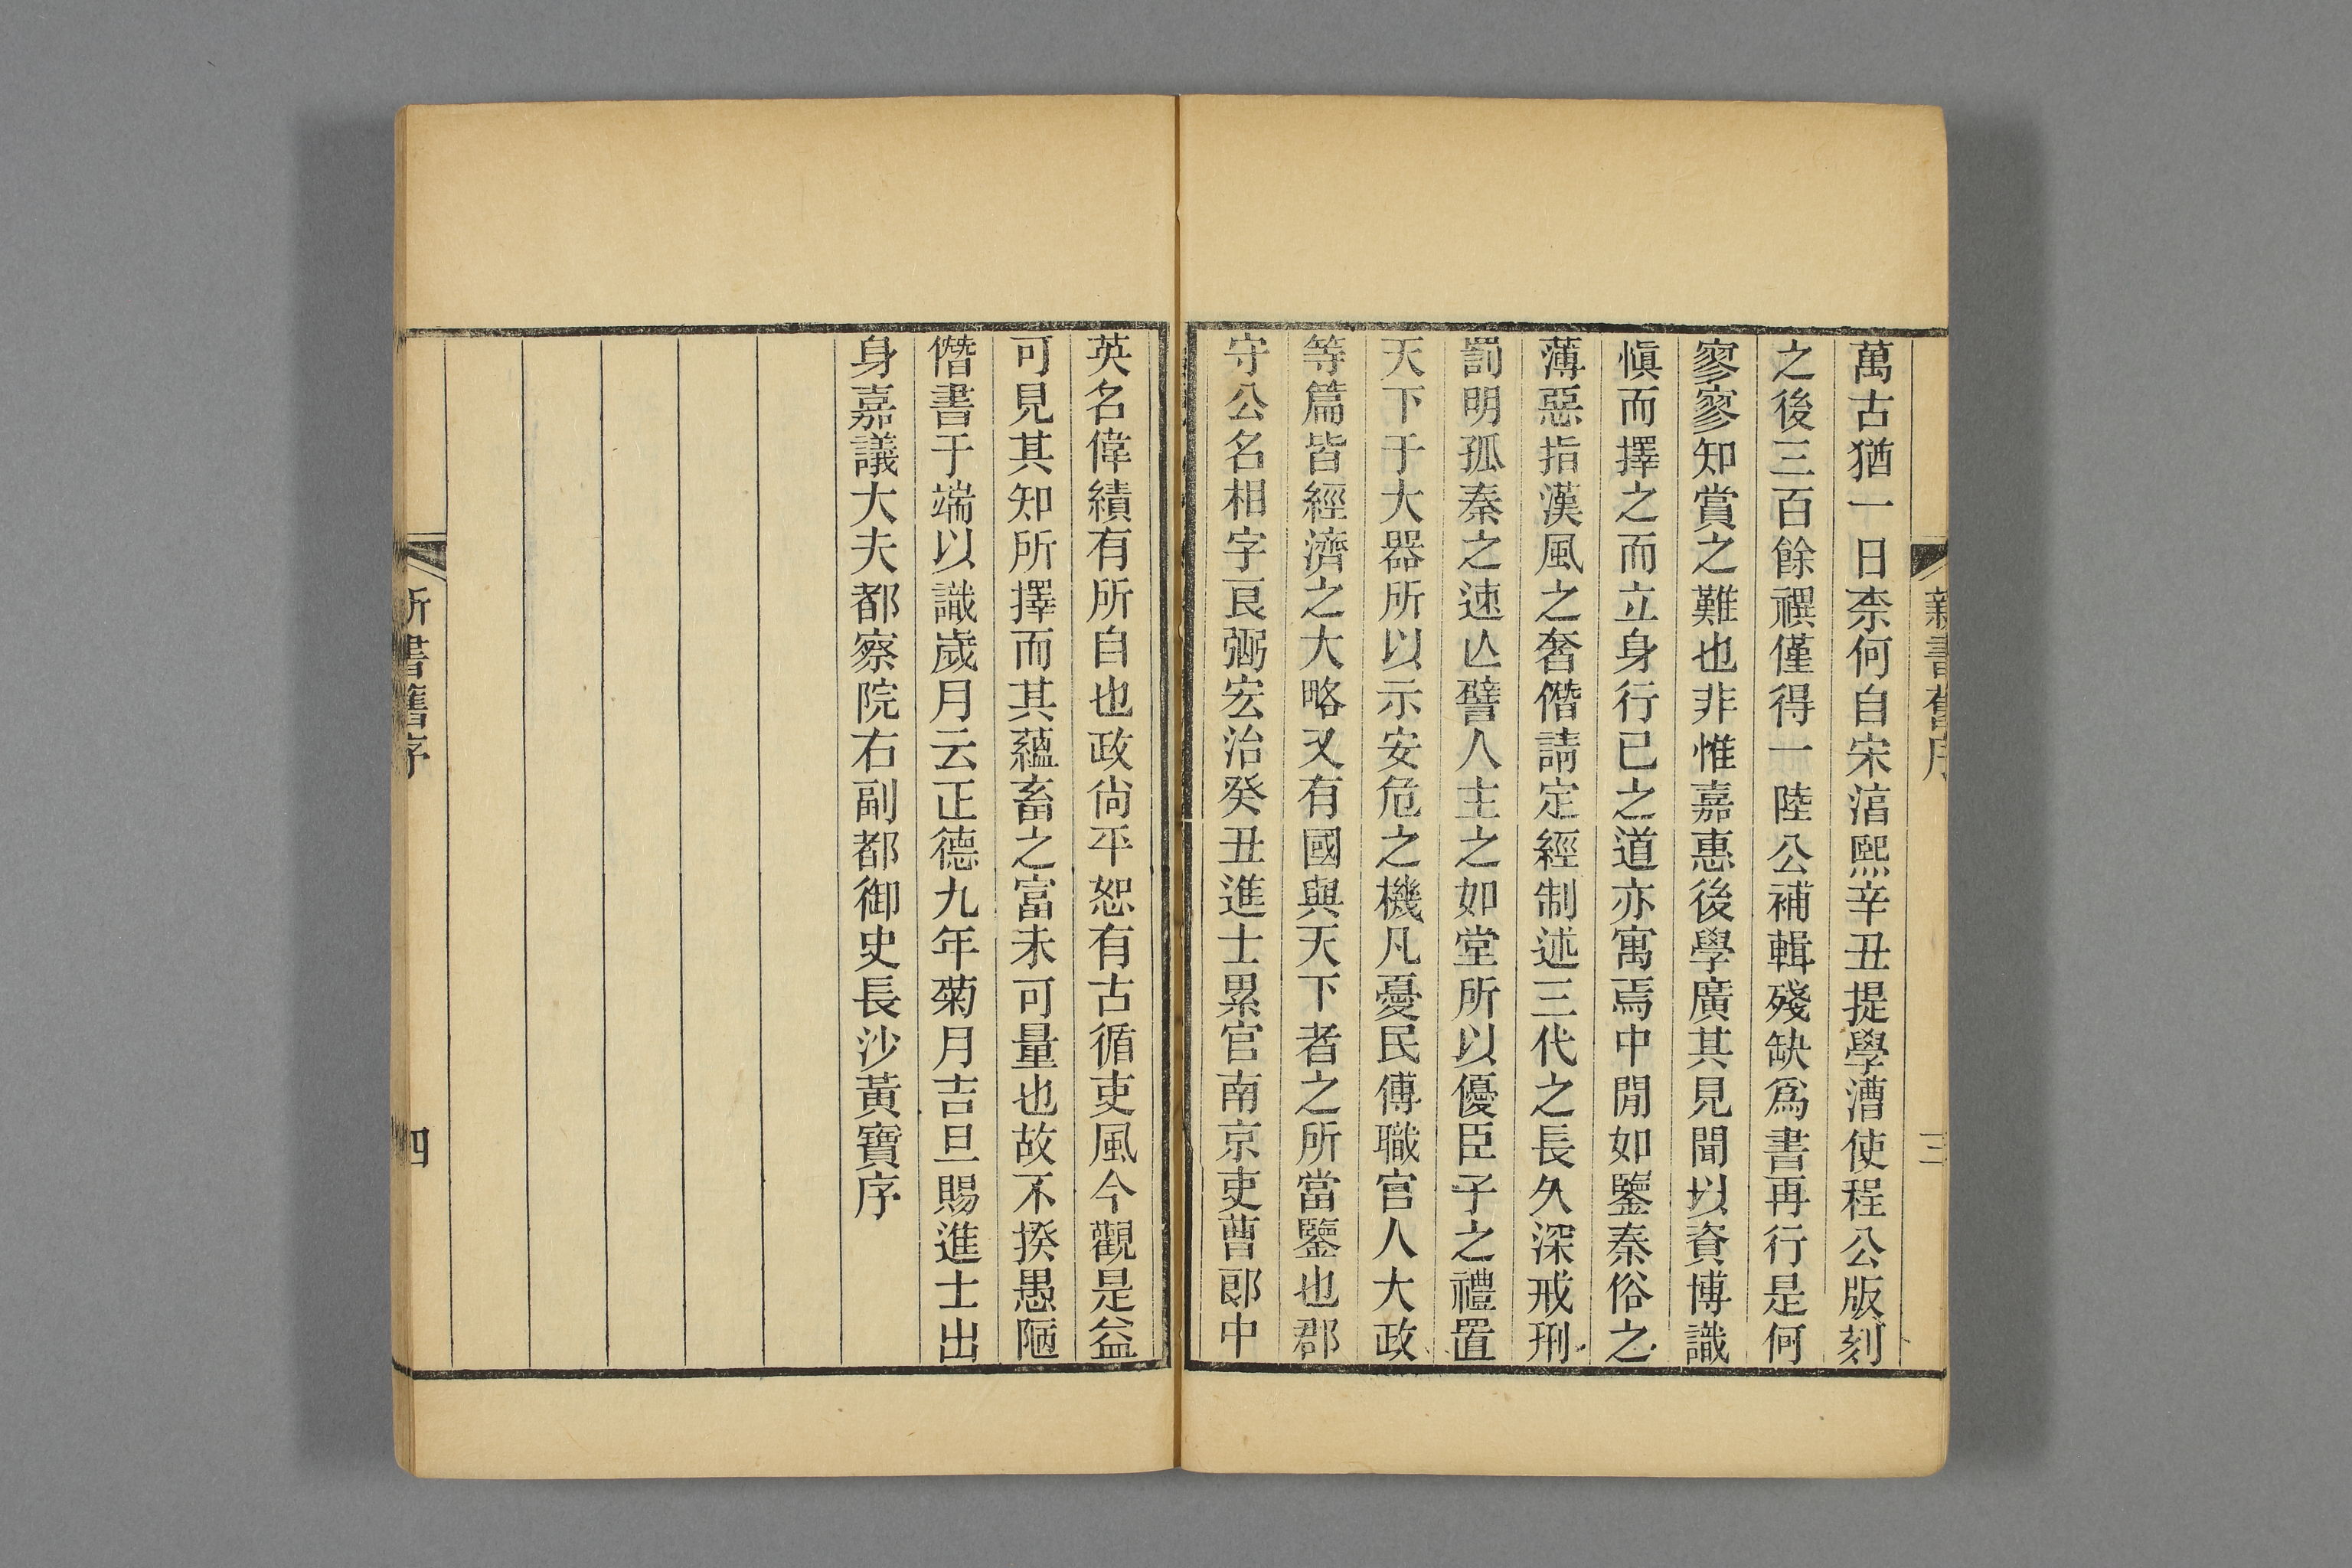 新書舊序
三
萬古猶一日柰何自宋湻熙辛丑提學漕使程公版刻
之後三百餘禩僅得一陸公補輯殘缺爲書再行是何
寥寥知賞之難也非惟嘉惠後學廣其見聞以資博識
愼而擇之而立身行已之道亦寓焉中閒如鑒秦俗之
薄惡指漢風之奢僭請定經制述三代之長久深戒刑
罰明孤秦之速亾譬人主之如堂所以優臣子之禮置
天下于大器所以示安危之機凡憂民傅職官人大政
等篇皆經濟之大略又有國與天下者之所當鑒也郡
守公名相字艮弼宏治癸丑進士累官南京吏曹郎中
英名偉績有所自也政尙平恕有古循吏風今觀是益
可見其知所擇而其蘊畜之富未可量也故不揆愚陋
僭書于端以識歲月云正德九年菊月吉旦賜進士出
身嘉議大夫都察院右副都御史長沙黃寶序
新書舊序
四